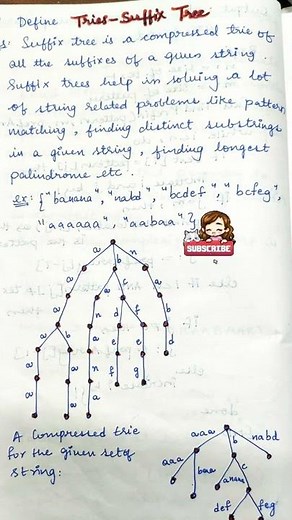 Define Tries-Suffix Tree
s: Suffix tree is a compressed trie of
all the suffixes of a given string.
Suffix trees help in solving a lot
of string related problems like pattern
matching, finding distinct substrings
in a given string, finding longest
palindrome etc.
ex: {"banana", "nabd", "bcdef", "bcfeg",
"aaaaaa", "aabaa"}
SUBSCRIBE
a b n
a a c a
a n d f b
a b a e e d
a a n f g
a a a
A Compressed trie
for the given set of
string:
aaa b nabd
aaa baa c
anana
def feg